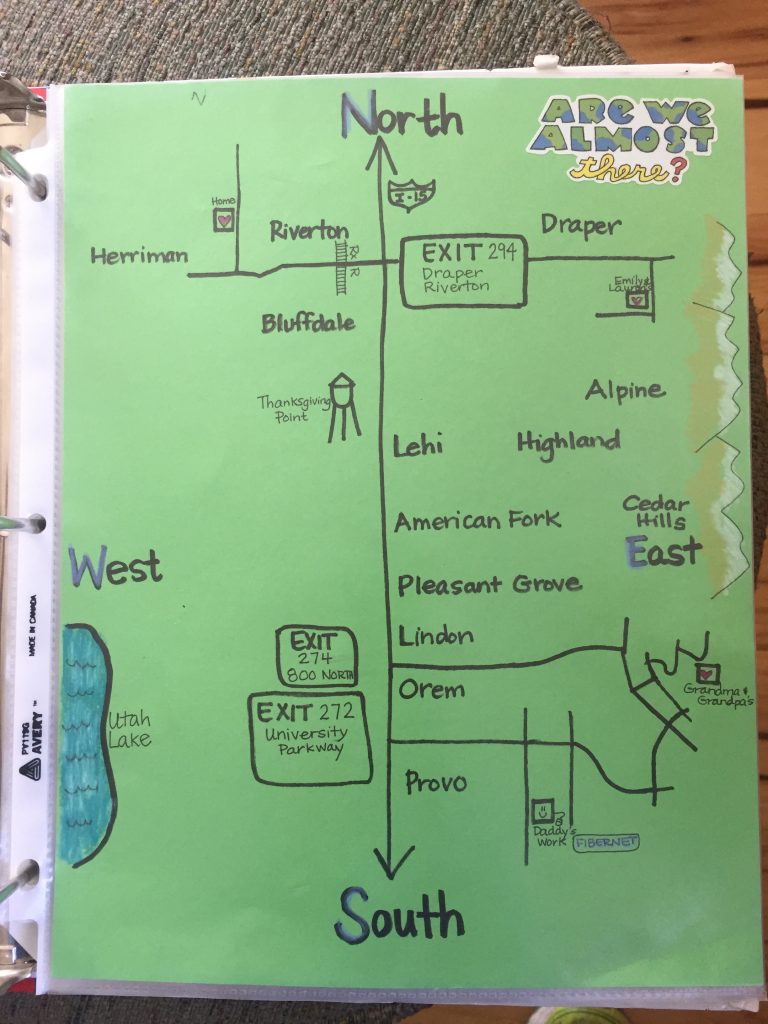 North
ARE WE
ALMOST
there?
N
I-15
Home
Riverton
RXR
Herriman
EXIT 294
Draper
Riverton
Draper
Bluffdale
Thanksgiving
Point
Alpine
Lehi
Highland
American Fork
Cedar
Hills
West
East
Pleasant Grove
Lindon
EXIT
274
800 NORTH
Orem
Grandma &
Grandpa's
EXIT 272
University
Parkway
Utah
Lake
Provo
Daddy's
Work
FIBERNET
South
MADE IN CANADA
AVERY™